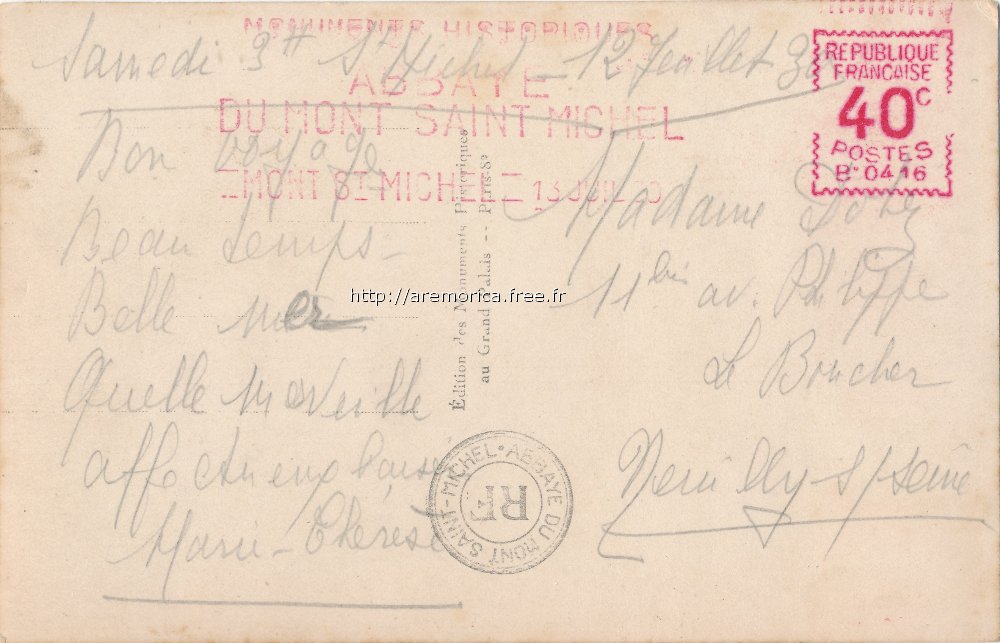 MONUMENTS HISTORIQUES
ABBAYE
DU MONT SAINT MICHEL
MONT ST MICHEL 13 JUIL
REPUBLIQUE
FRANCAISE
40c
POSTES
B. 0416
Samedi St Michel 12 Juillet
Bon voyage
Beau temps
Belle mer
Quelle merveille
affectueux baisers
Marie-Thérèse
Édition des Monuments Historiques
au Grand Palais -- Paris 8e
http://aremorica.free.fr
Madame
11 bis av. Philippe
Le Boucher
Neuilly s/ Seine
SAINT-MICHEL • ABBAYE DU MONT
RF